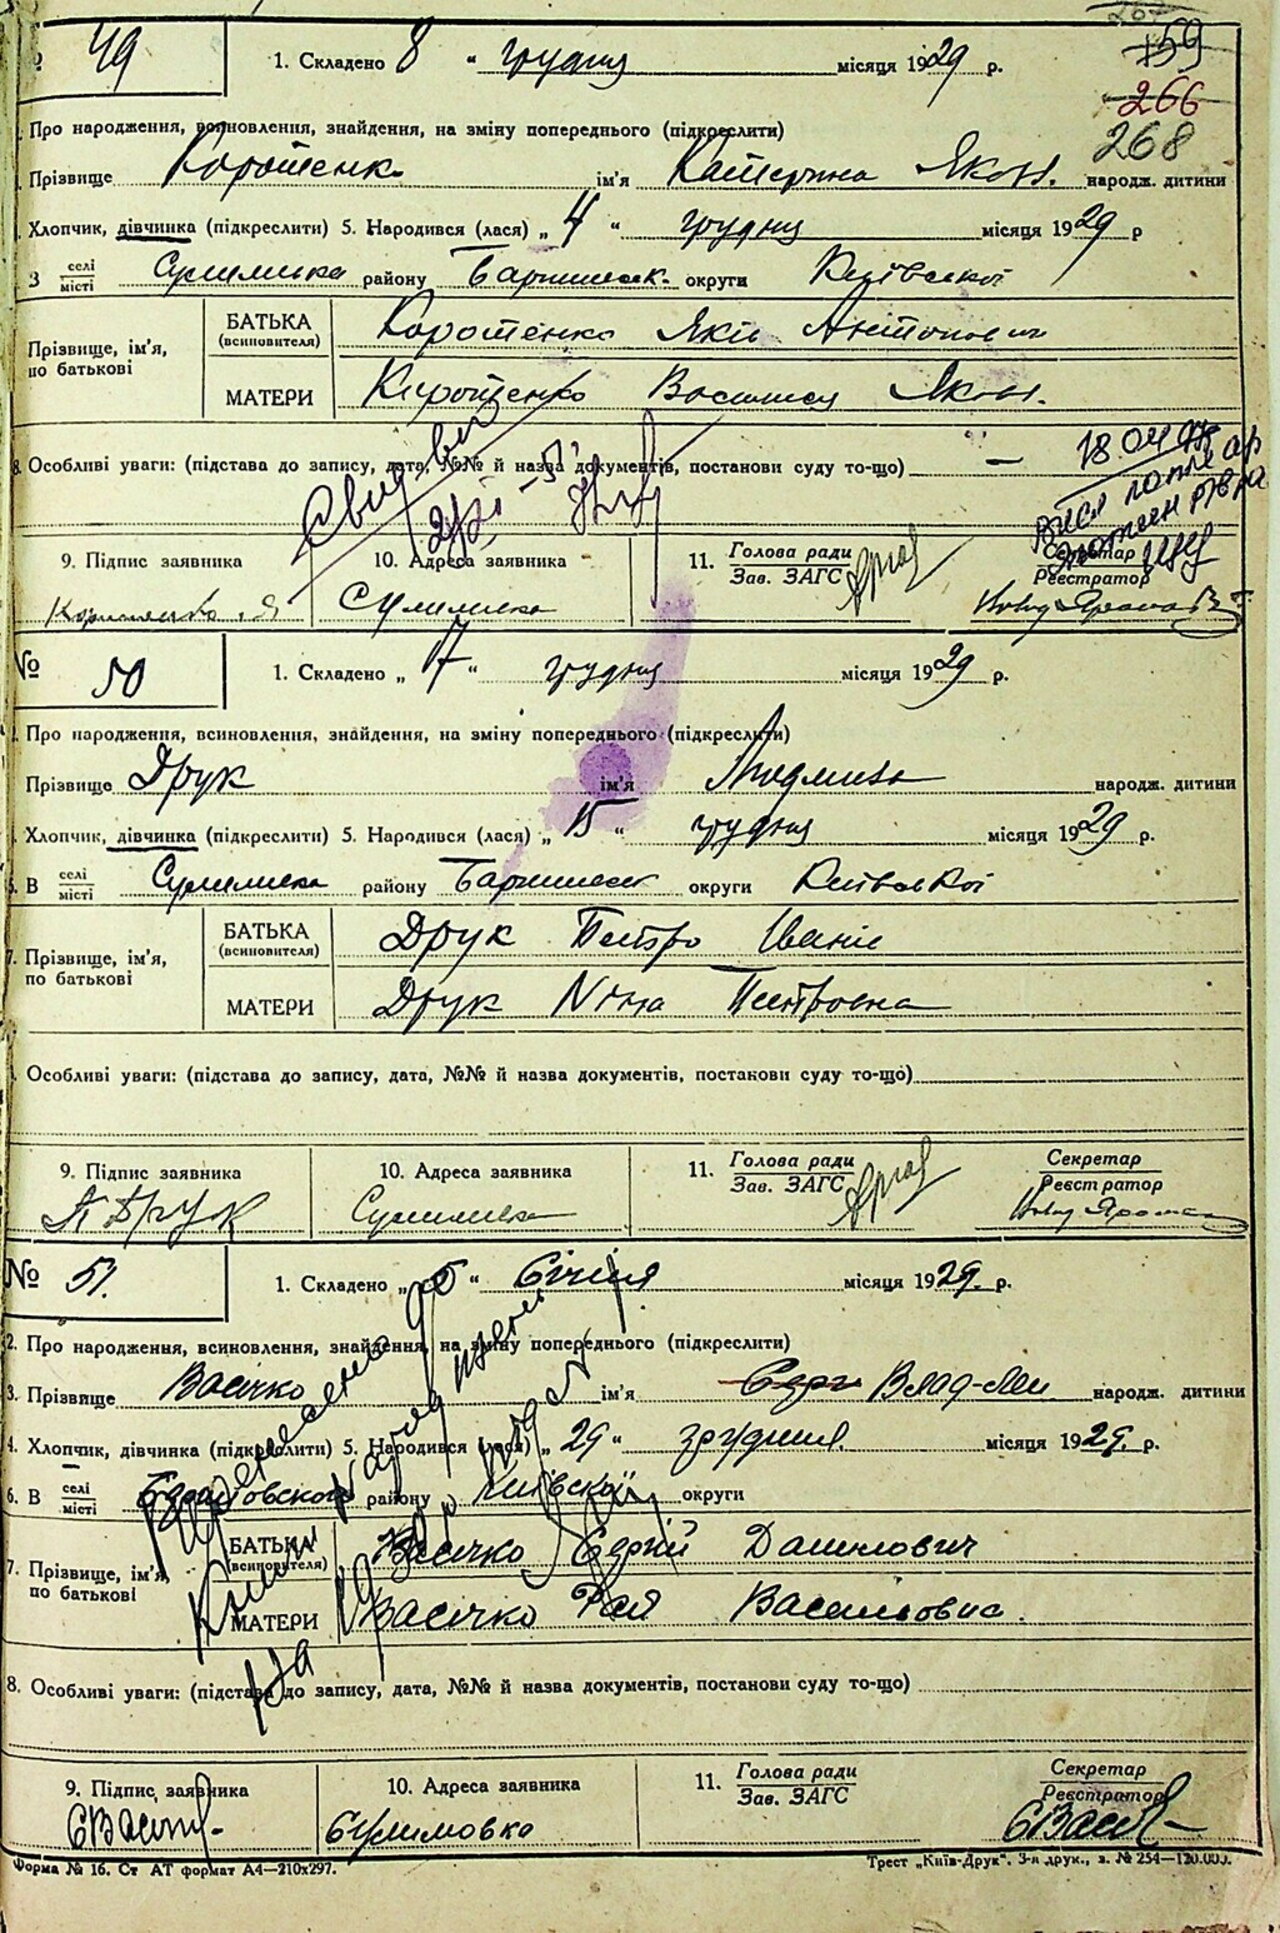 № 49 1. Складено 8 " грудня місяця 1929 р. 159
266
Про народження, всиновлення, знайдення, на зміну попереднього (підкреслити) 268
Прізвище Коротенко ім'я Катерина Яков. народж. дитини
Хлопчик, дівчинка (підкреслити) 5. Народився (лася) „ 4 " грудня місяця 1929 р
З селі/місті Сулимівка району Баришівськ. округи Київської
Прізвище, ім'я, по батькові БАТЬКА (всиновителя) Коротенко Яків Антонович
МАТЕРИ Коротенко Василиса Яков.
8. Особливі уваги: (підстава до запису, дата, №№ й назва документів, постанови суду то-що) —
9. Підпис заявника 10. Адреса заявника 11. Голова ради / Зав. ЗАГС Секретар / Реєстратор
Сулимівка
№ 50 1. Складено „ 17 " грудня місяця 1929 р.
Про народження, всиновлення, знайдення, на зміну попереднього (підкреслити)
Прізвище Друк ім'я Людмила народж. дитини
Хлопчик, дівчинка (підкреслити) 5. Народився (лася) „ 15 " грудня місяця 1929 р.
6. В селі/місті Сулимівка району Баришівськ округи Київської
7. Прізвище, ім'я, по батькові БАТЬКА (всиновителя) Друк Петро Іванів
МАТЕРИ Друк Ніна Петровна
Особливі уваги: (підстава до запису, дата, №№ й назва документів, постанови суду то-що)
9. Підпис заявника 10. Адреса заявника 11. Голова ради / Зав. ЗАГС Секретар / Реєстратор
П Друк Сулимівка
№ 51. 1. Складено „ " Січня місяця 1929. р.
2. Про народження, всиновлення, знайдення, на зміну попереднього (підкреслити)
3. Прізвище Васічко ім'я народж. дитини
4. Хлопчик, дівчинка (підкреслити) 5. Народився (лася) „ 29 " грудня місяця 1929. р.
6. В селі/місті району Київської округи
7. Прізвище, ім'я, по батькові БАТЬКА (всиновителя) Васічко Сергій Данилович
МАТЕРИ Васічко Рая Васильовна.
8. Особливі уваги: (підстава до запису, дата, №№ й назва документів, постанови суду то-що)
9. Підпис заявника 10. Адреса заявника 11. Голова ради / Зав. ЗАГС Секретар / Реєстратор
Сулимовка
Форма № 16. Ст АТ формат А4—210х297. Трест „Київ-Друк". 3-я друк., з. № 254—120.000.